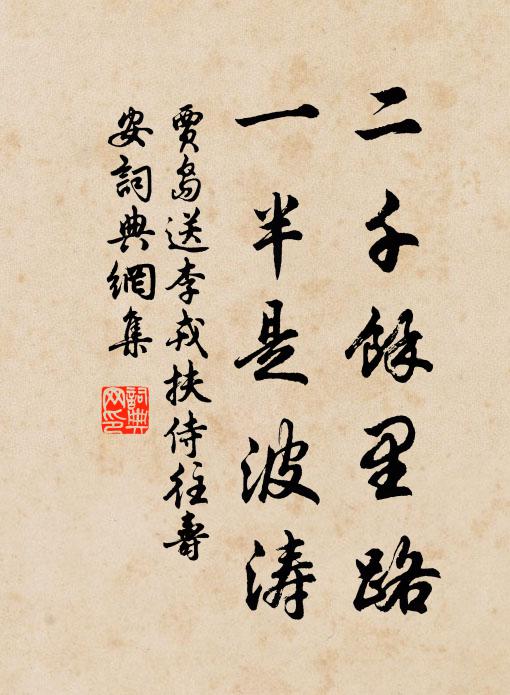 二千餘里路
一半是波濤
賈島送李戎扶侍往壽
安詞典網集
詞典
网印